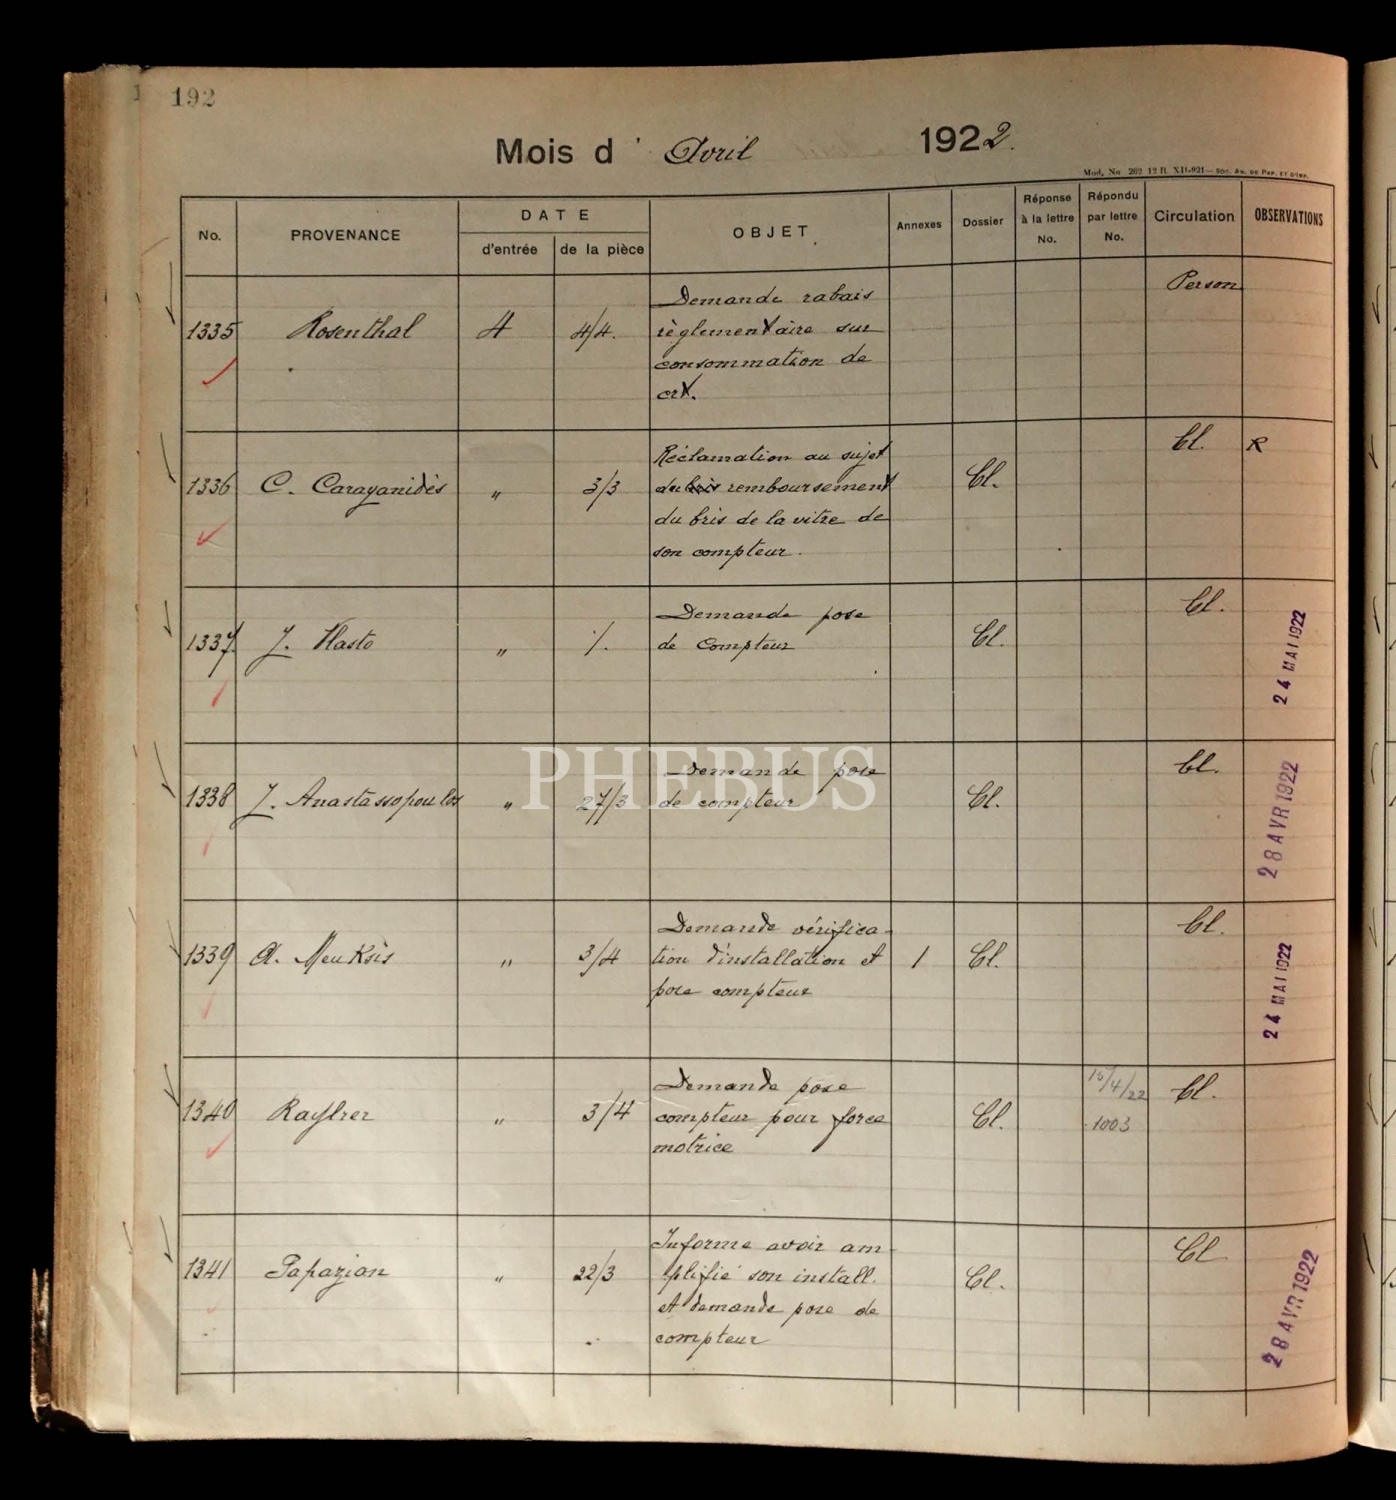 192
Mois d' Avril 1922.
Mod. No 262 12 R. XII-921 — Soc. An. de Pap. et d'Imp.
No. PROVENANCE DATE d'entrée de la pièce OBJET Annexes Dossier Réponse à la lettre No. Répondu par lettre No. Circulation OBSERVATIONS
Demande rabais Person
1335 Rosenthal 4 4/4. règlementaire sur
consommation de
crt.
Réclamation au sujet Cl. R
1336 C. Carayanidès " 3/3 remboursement Cl.
du bris de la vitre de
son compteur.
Demande pose Cl.
1337 J. Vlasto " /. de Compteur Cl. 24 MAI 1922
PHEBUS
Demande pose Cl.
1338 J. Anastassopoulos " 27/3 de compteur Cl. 28 AVR 1922
Demande vérifica- Cl.
1339 A. " 3/4 tion d'installation et 1 Cl. 24 MAI 1922
pose compteur
Demande pose 15/4/22 Cl.
1340 " 3/4 compteur pour force Cl. 1003
motrice
Informe avoir am Cl
1341 Papazian " 22/3 plifié son install. Cl. 28 AVR 1922
et demande pose de
compteur